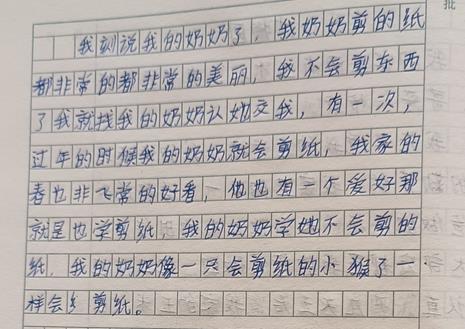 我刻说我的奶奶了 我奶奶剪的纸
都非常的都非常的美丽，我不会剪东西
了我就找我的奶奶认她交我，有一次，
过年的时候我的奶奶就会剪纸，我家的
春也非飞常的好看，他也有一个爱好那
就是也学剪纸 我的奶奶学她不会剪的
纸，我的奶奶像一只会剪纸的小猴了一
样会剪纸。
批